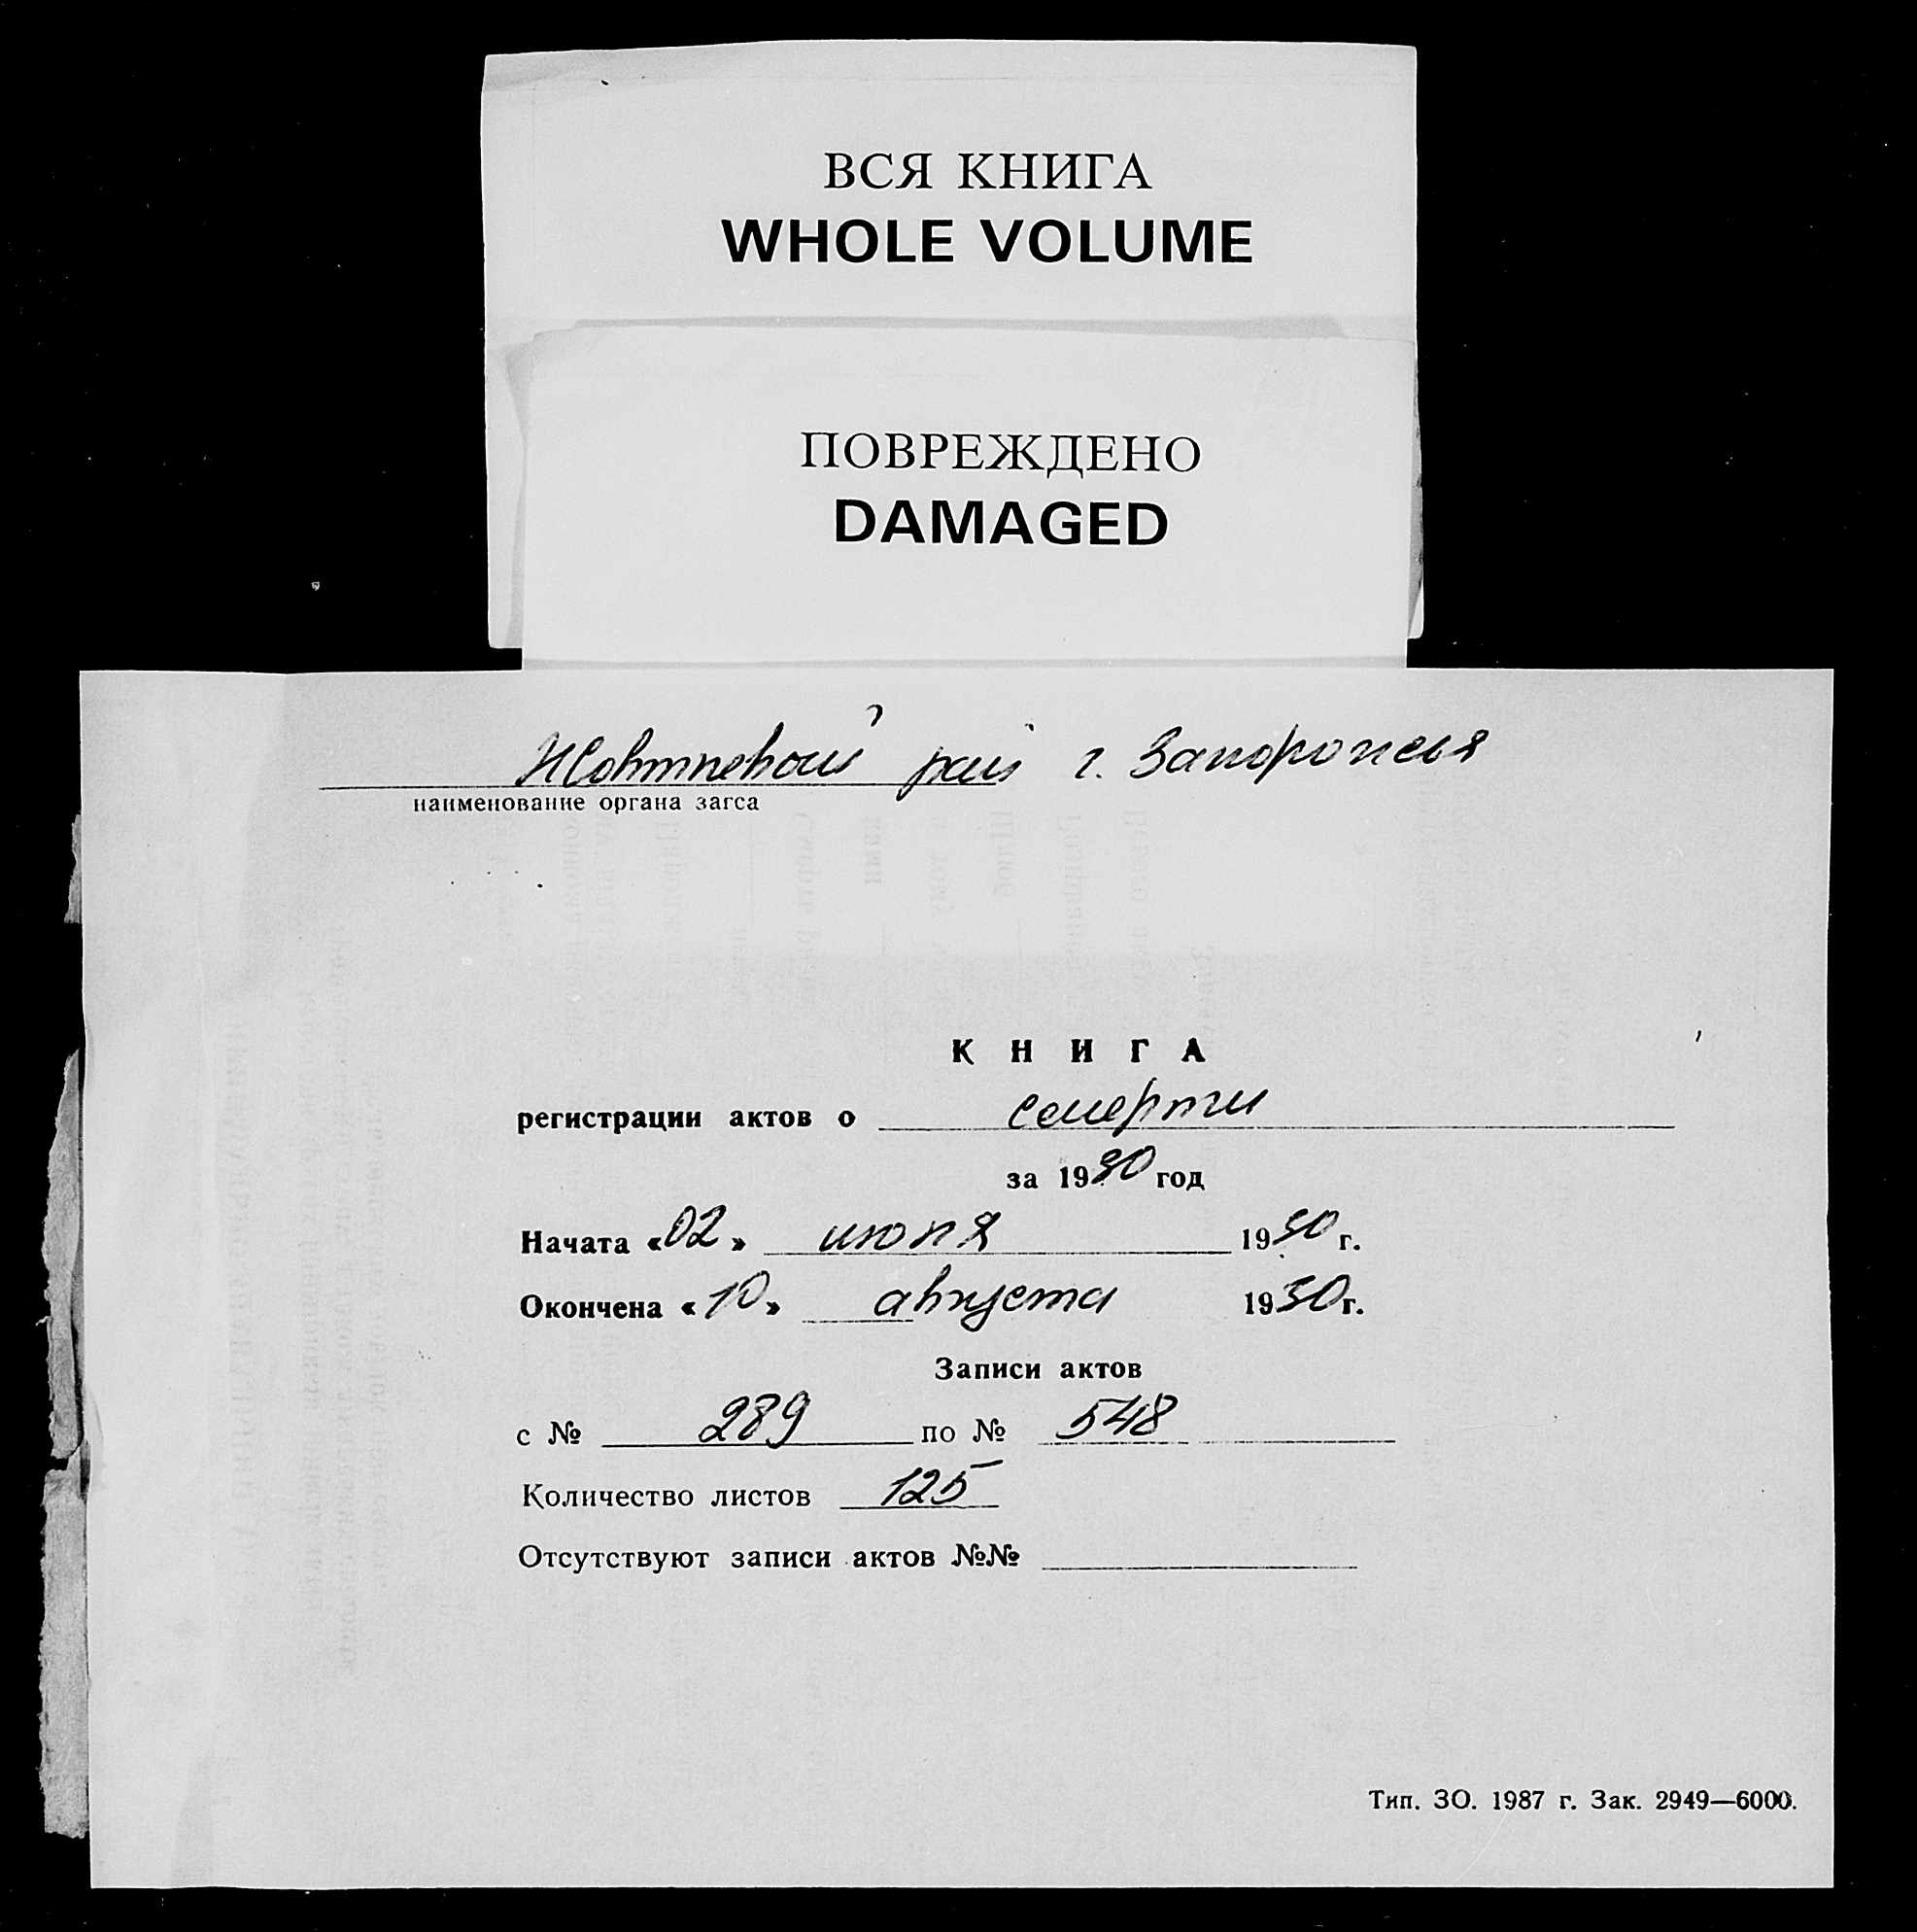 ВСЯ КНИГА
WHOLE VOLUME
ПОВРЕЖДЕНО
DAMAGED
Жовтневый рай г. Запорожья
наименование органа загса
КНИГА
регистрации актов о смерти
за 1930 год
Начата «02» июля 1930 г.
Окончена «10» августа 1930 г.
Записи актов
с № 289 по № 548
Количество листов 125
Отсутствуют записи актов №№
Тип. ЗО. 1987 г. Зак. 2949—6000.